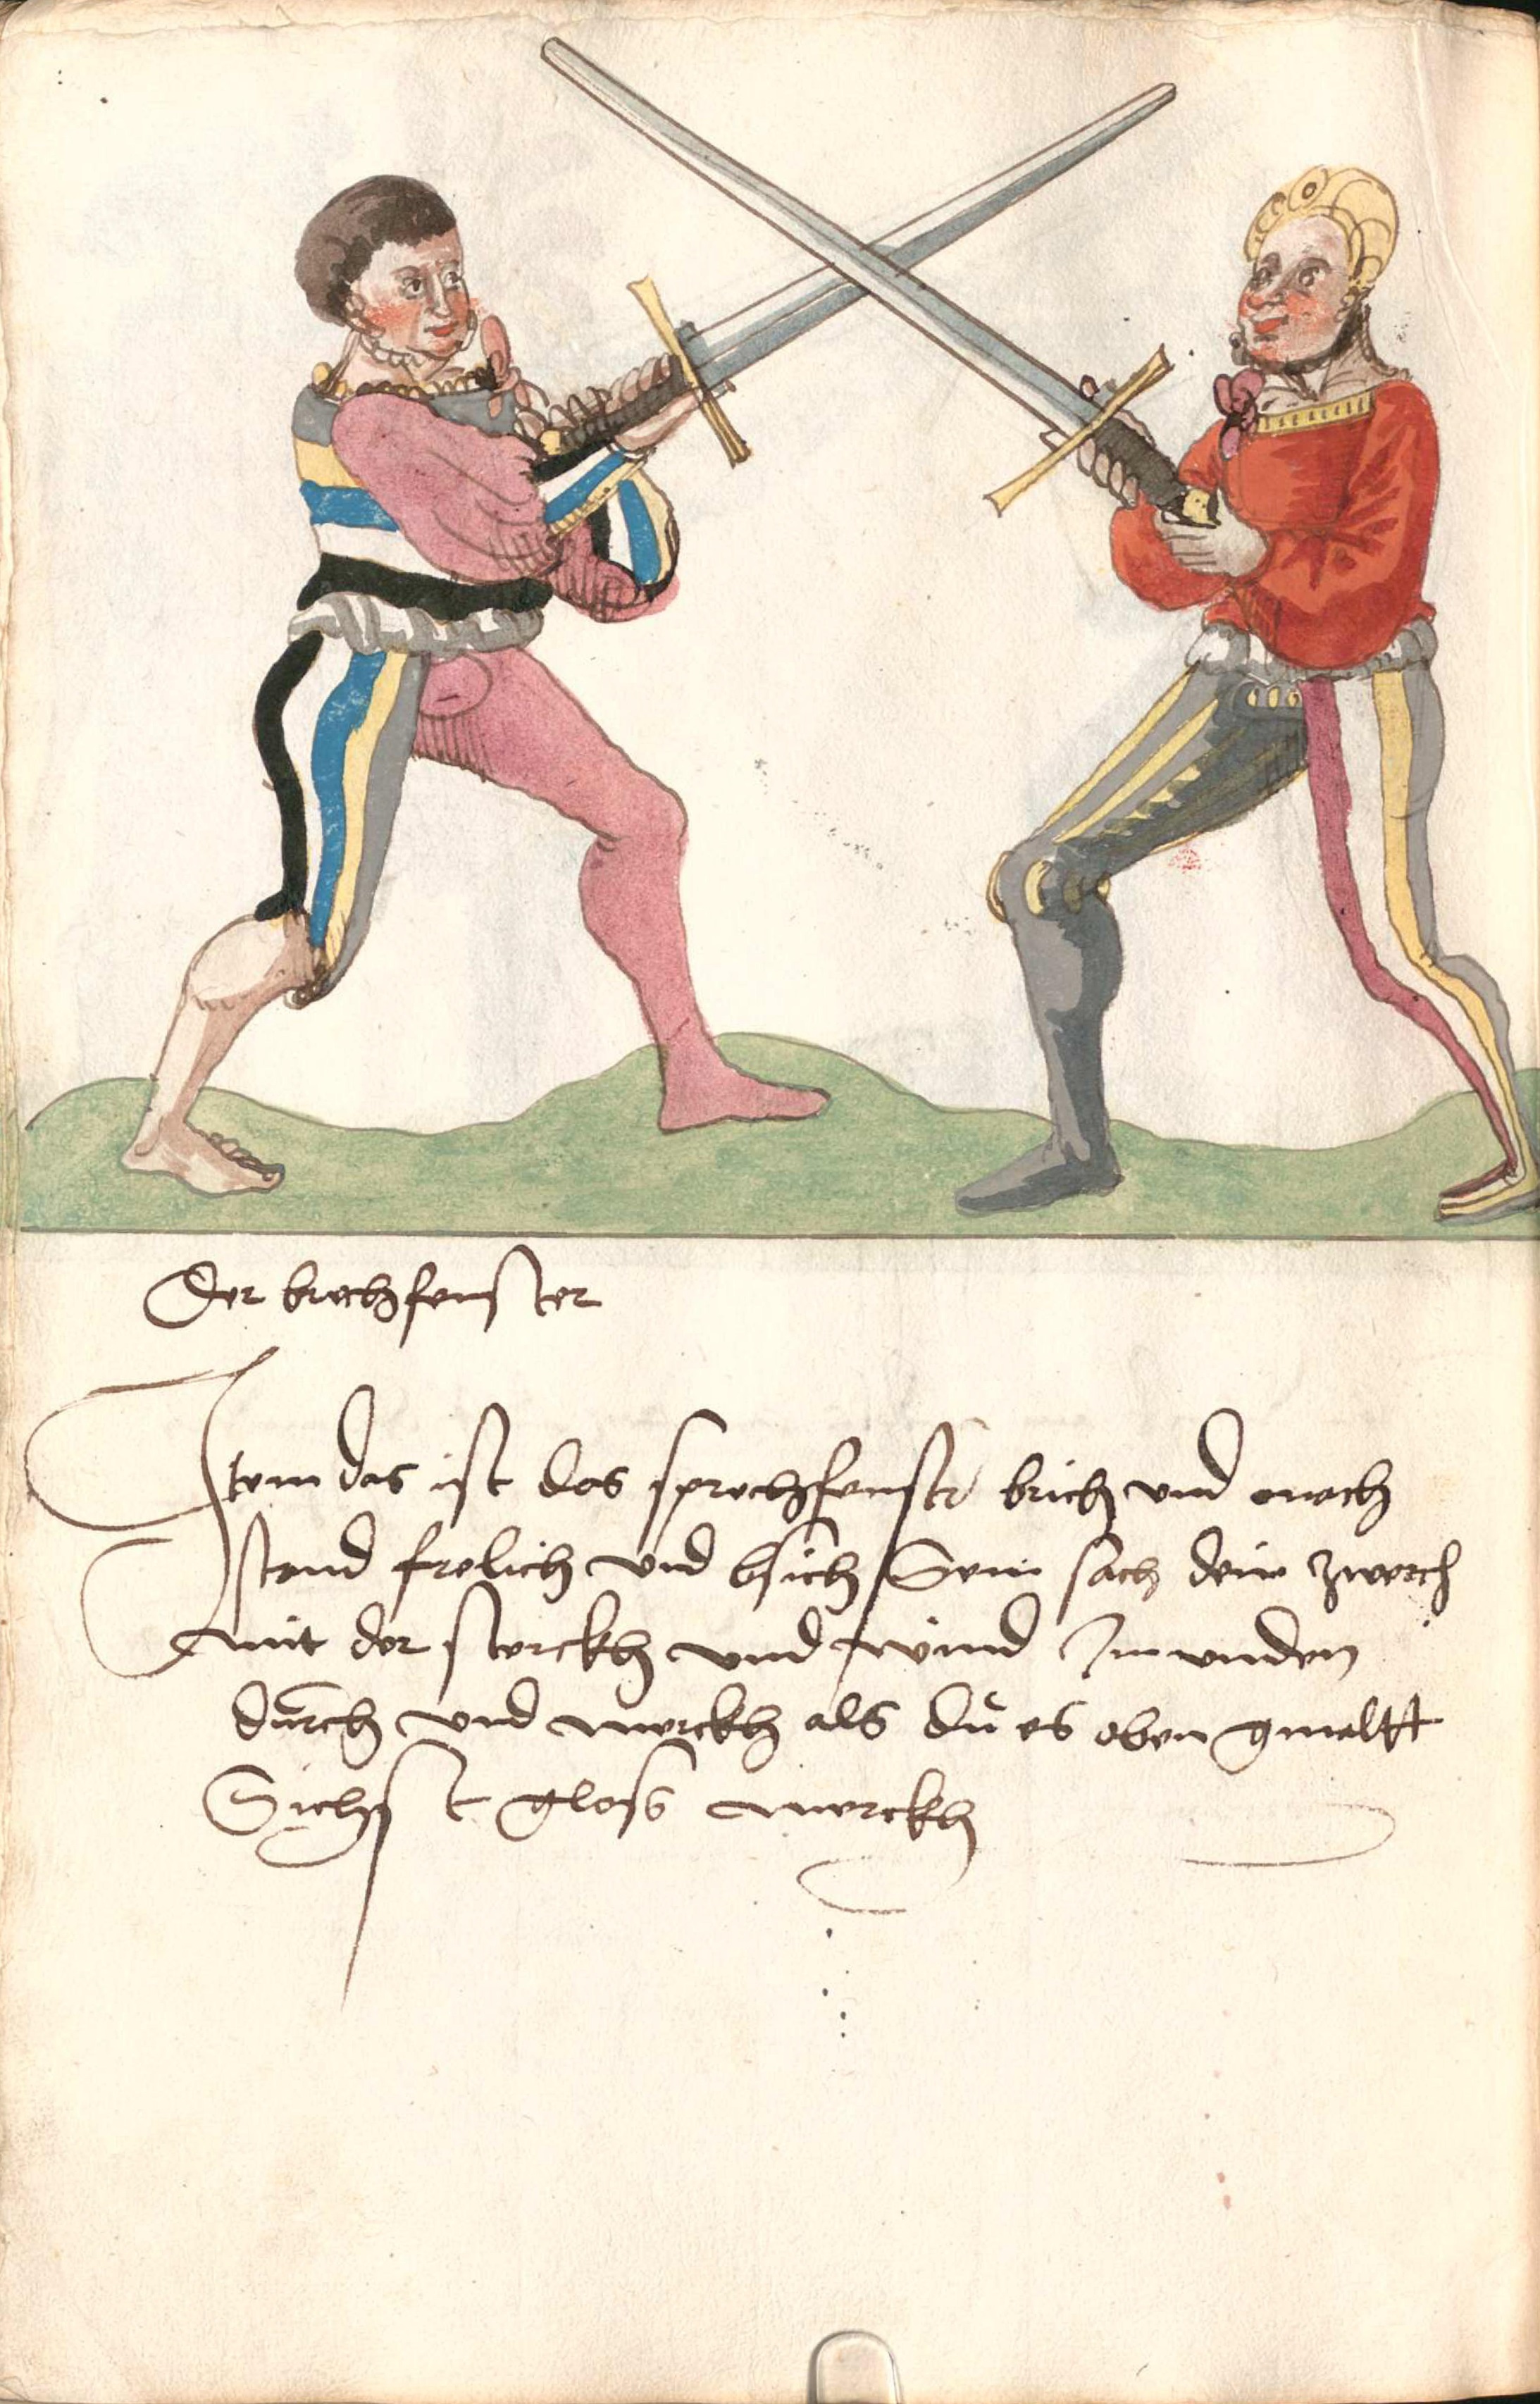 Der brechfenster
Item das ist das sprechfenstr brich und mach
stand frolich und bsich Sein sach dein zwerch
mit der sterckh und wind Im unden
durch und merckh als du es oben gmaltt
Sichst gloss merckh